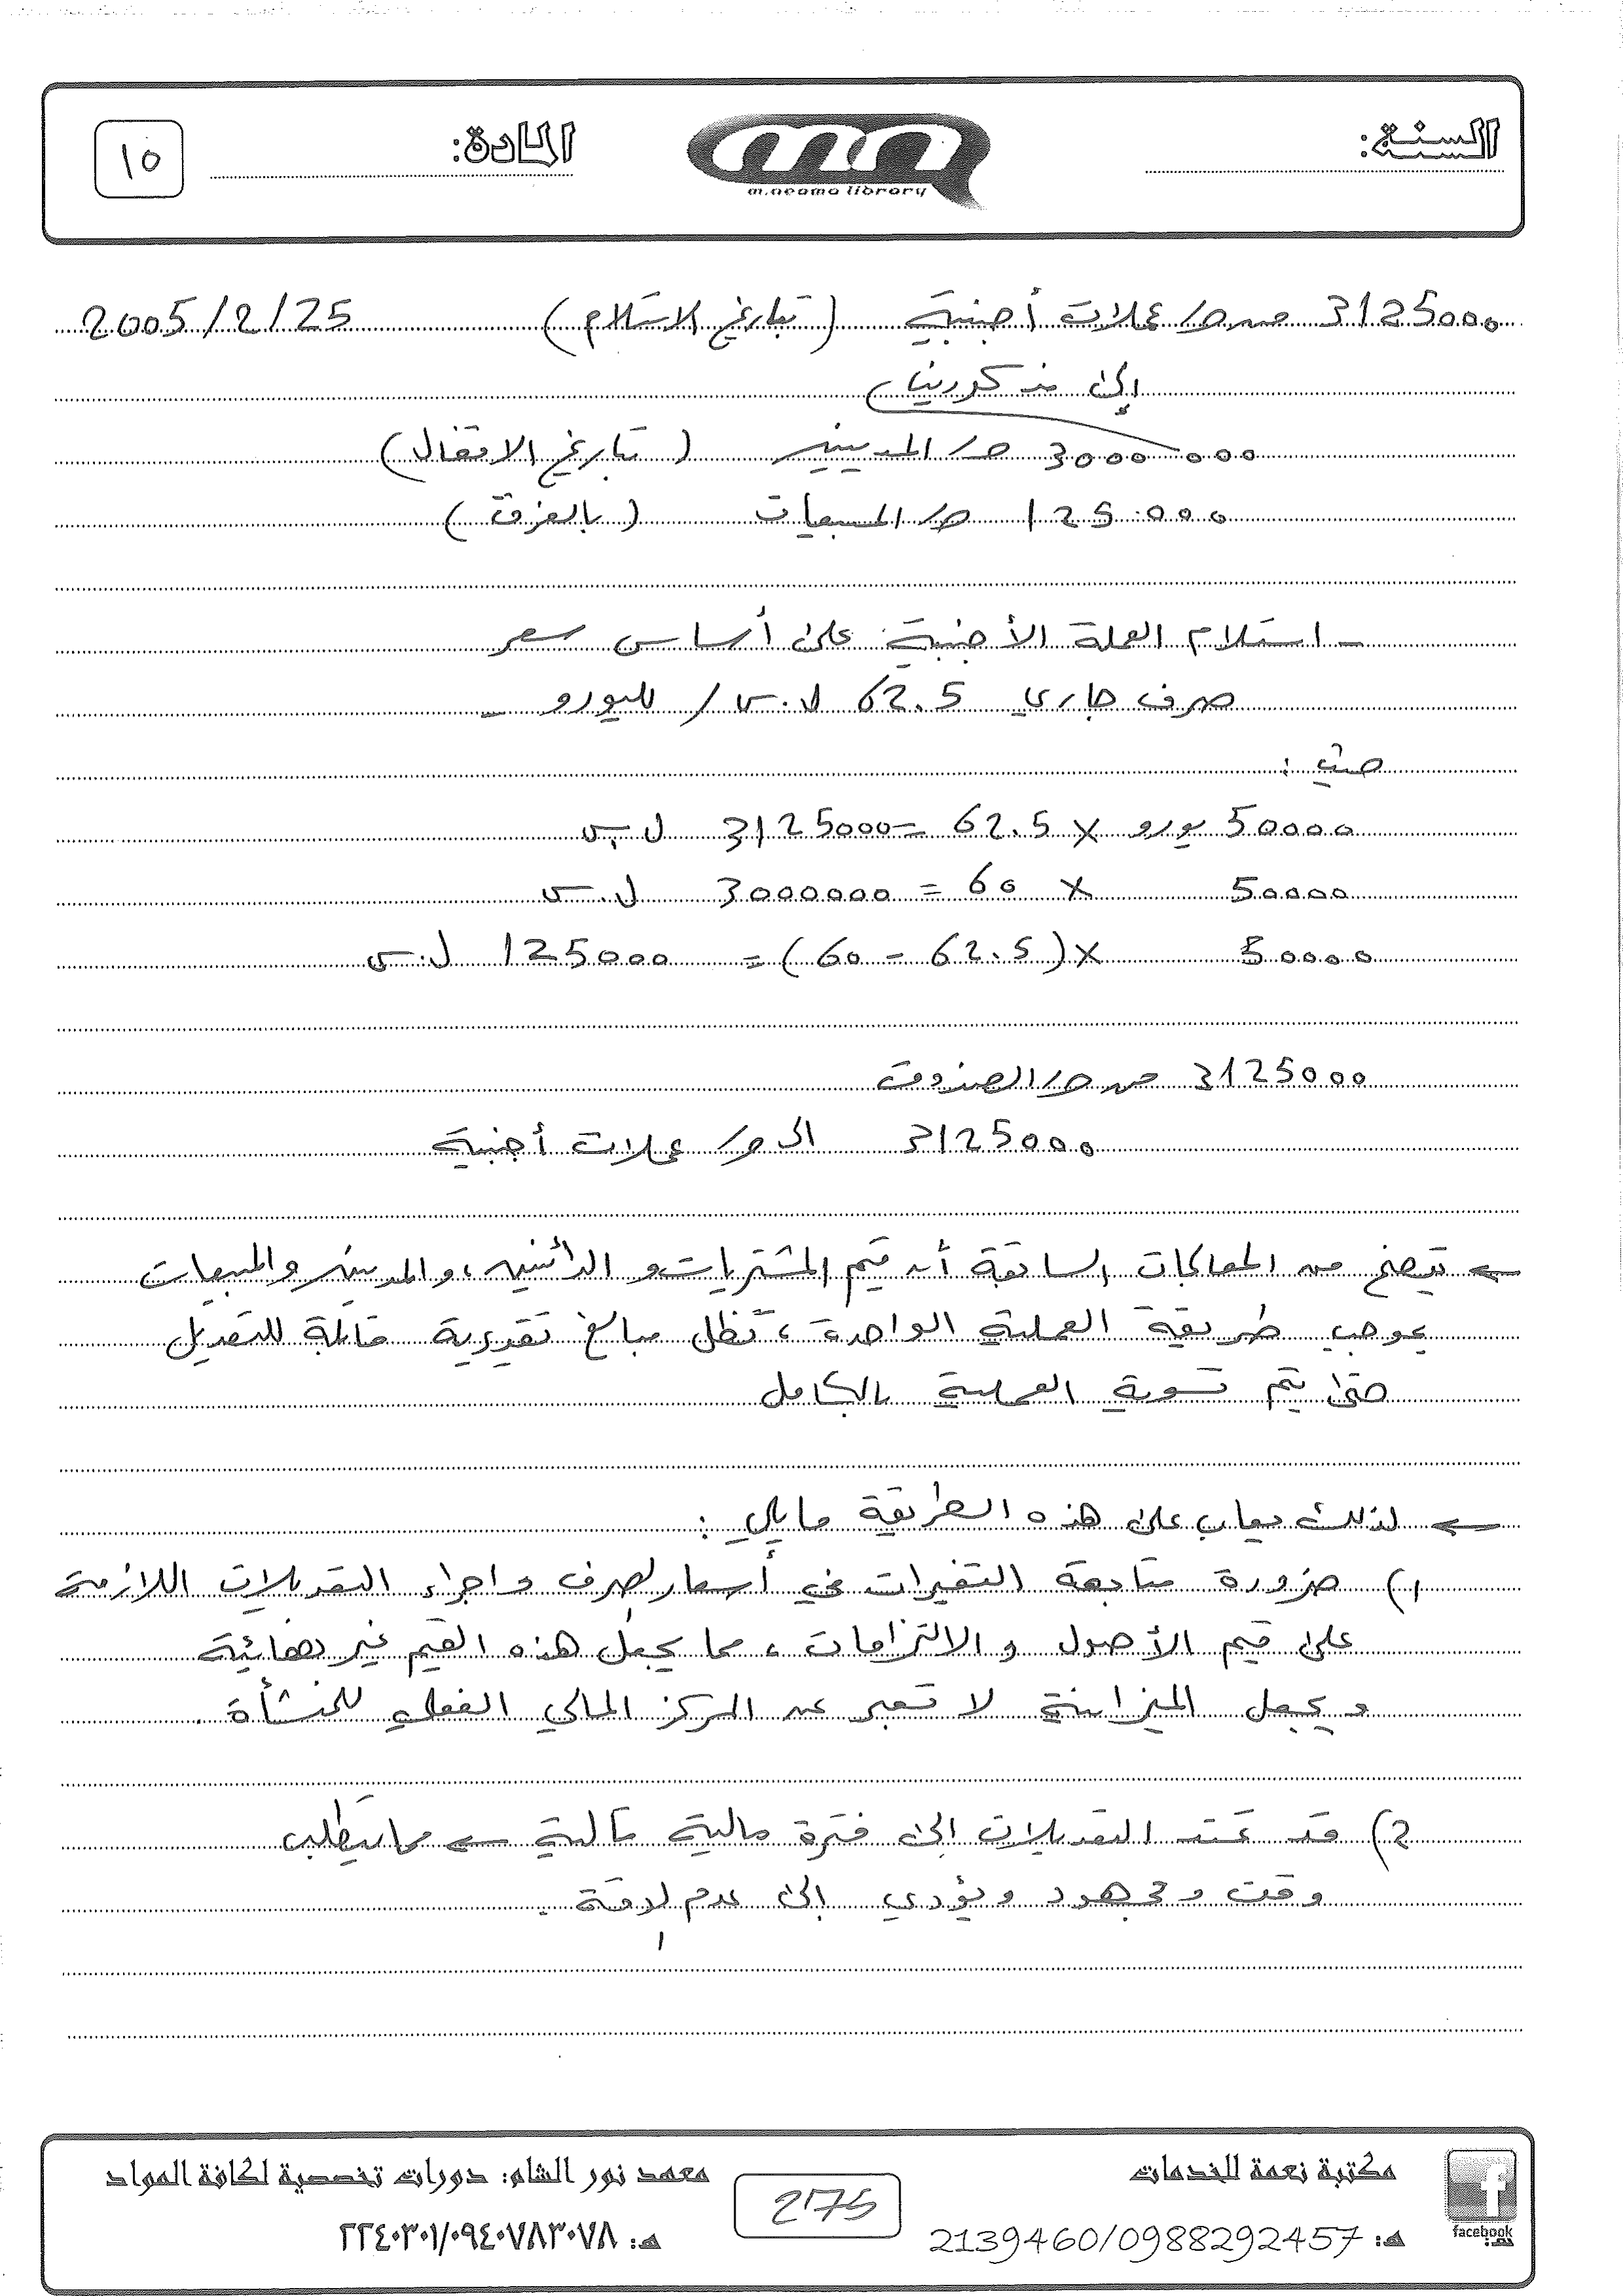 السنة:
m.neama library
المادة:
١٥
3125000 من ح/ عملات أجنبية (بتاريخ الاستلام) 2005/2/25
إلى مذكورين
3000000 ح/ المدينين (تاريخ الاقفال)
125000 ح/ المبيعات (بالفرق)
- استلام العملة الأجنبية على أساس سعر
صرف جاري 62.5 ل.س / لليورو -
حيث :
50000 يورو × 62.5 = 3125000 ل.س
50000 × 60 = 3000000 ل.س
50000 × (62.5 - 60) = 125000 ل.س
3125000 من ح/ الصندوق
3125000 الى ح/ عملات أجنبية
← يتضح من المعالجات السابقة أن قيم المشتريات و الدائنين، والمدينين والمبيعات
بموجب طريقة العملية الواحدة، تظل مبالغ تقديرية قابلة للتعديل
حتى يتم تسوية العملية بالكامل
← لذلك يعاب على هذه الطريقة مايلي :
1) ضرورة متابعة التغيرات في أسعار الصرف و اجراء التعديلات اللازمة
على قيم الأصول و الالتزامات، مما يجعل هذه القيم غير نهائية
و يجعل الميزانية لا تعبر عن المركز المالي الفعلي للمنشأة.
2) قد تمتد التعديلات الى فترة مالية تالية ← مما يتطلب
وقت و مجهود و يؤدي الى عدم الدقة.
مكتبة نعمة للخدمات
هـ: 2139460/0988292457
facebook
2175
معهد نور الشام: دورات تخصصية لكافة المواد
هـ: ٢٢٤٠٣٠١/٠٩٤٠٧٨٣٠٧٨